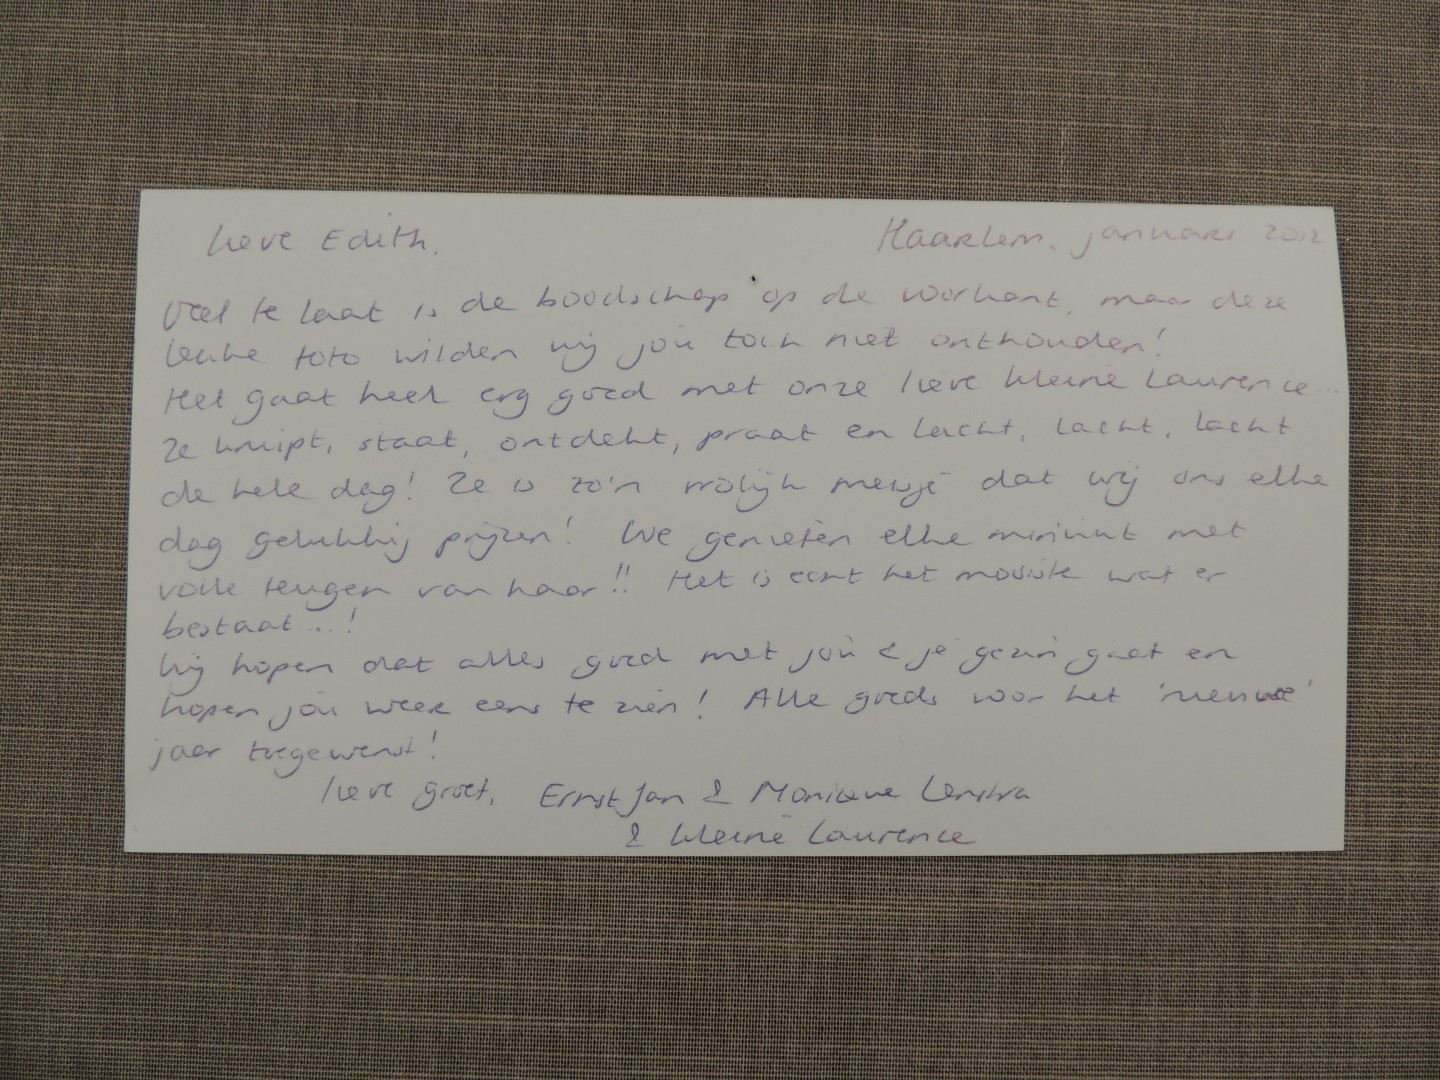 Lieve Edith,
Haarlem, januari 2012
Veel te laat is de boodschap op de voorkant, maar deze
leuke foto wilden wij jou toch niet onthouden!
Het gaat heel erg goed met onze lieve kleine Laurence...
Ze kruipt, staat, ontdekt, praat en lacht, lacht, lacht
de hele dag! Ze is zo'n vrolijk meisje dat wij ons elke
dag gelukkig prijzen! We genieten elke minuut met
volle teugen van haar!! Het is echt het mooiste wat er
bestaat...!
Wij hopen dat alles goed met jou & je gezin gaat en
hopen jou weer eens te zien! Alle goeds voor het 'nieuwe'
jaar toegewenst!
Lieve groet, Ernst Jan & Monique
& kleine Laurence